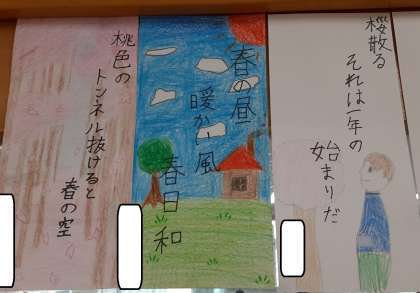 桜散る
それは一年の
始まりだ
春の昼
暖かい風
春日和
桃色の
トンネル抜けると
春の空